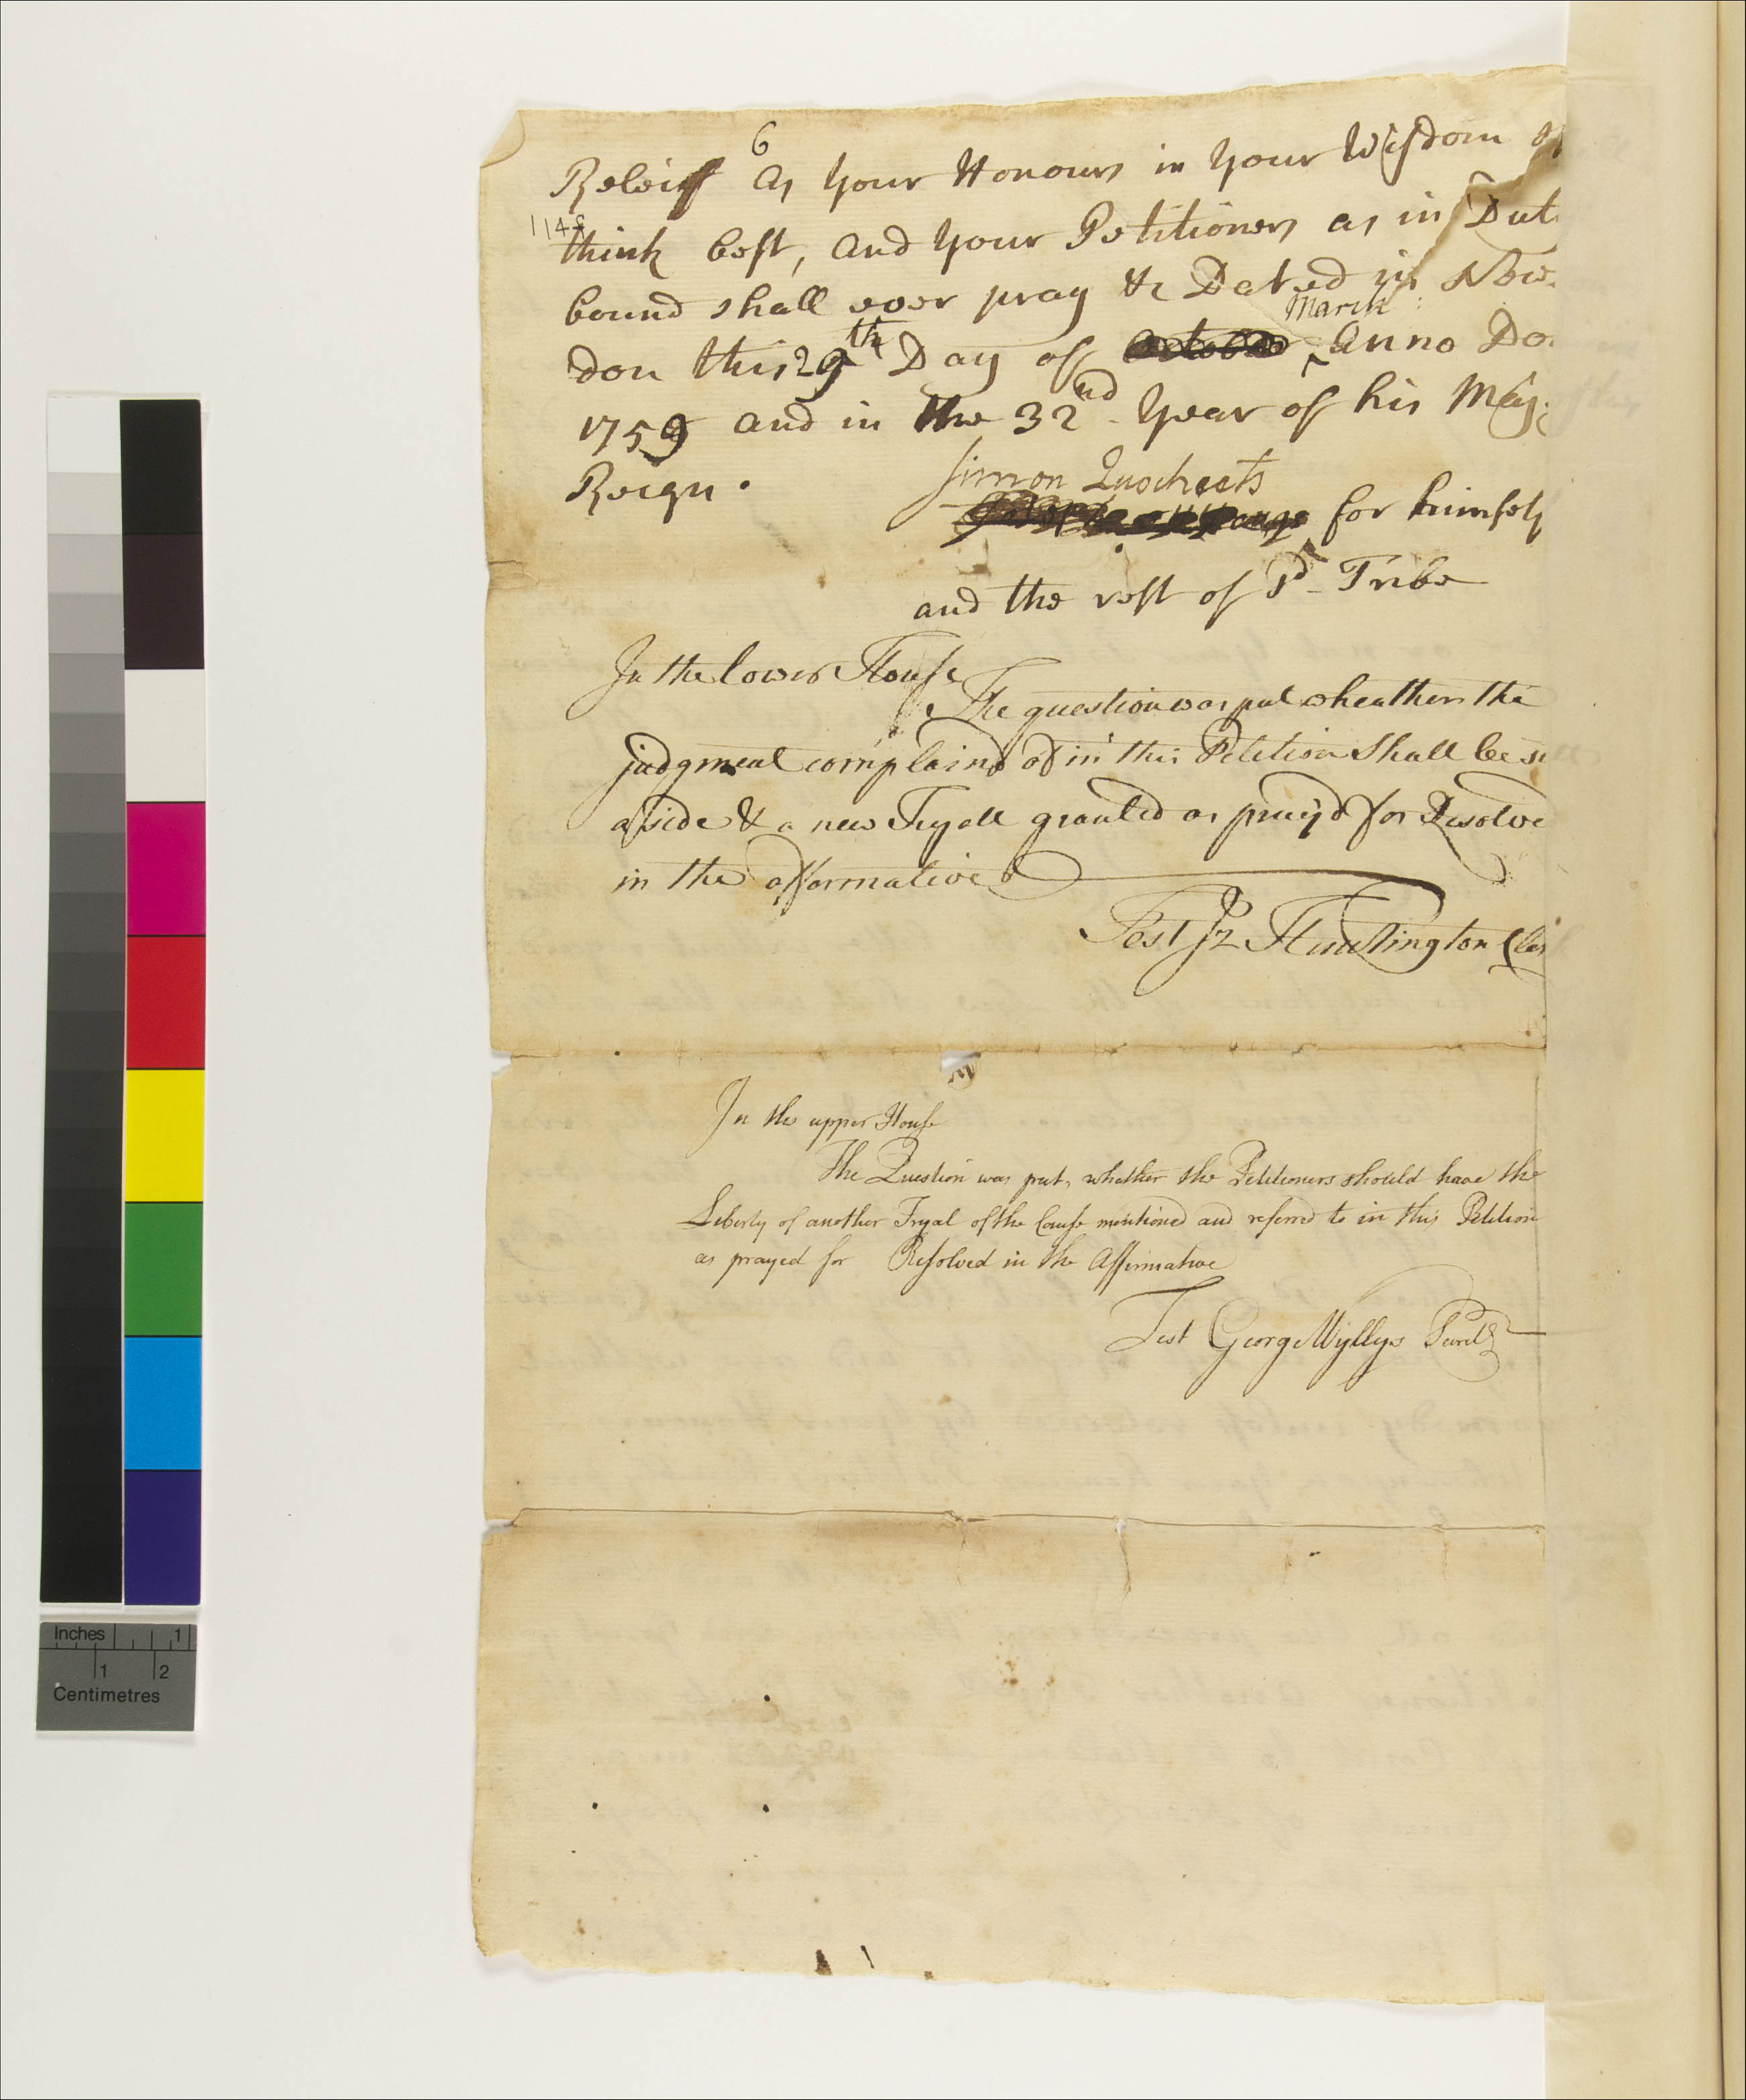 6
Releiff as your Honours in your Wisdom
114
think best, and your Petitioners as in Dut
bound shall ever pray &c Dated in New
March
don this 29th Day of October ^ Anno Do
1759 and in the 32nd Year of his Maj
Reign.
Simon Quocheets
for himself
and the rest of sd Tribe
In the lower House
The question was put wheather the
judgment complaind of in this Petition Shall be se
aside & a new Tryall granted as prayd for Resolve
in the affarmative
Test Jz Huntington Cler
In the upper House
The Question was put, whether the Petitioners should have the
Liberty of another Tryal of the Cause mentioned and referred to in this Petition
as prayed for Resolved in the Affirmative
Test George Wyllys Secrety
Inches 1
1 2
Centimetres